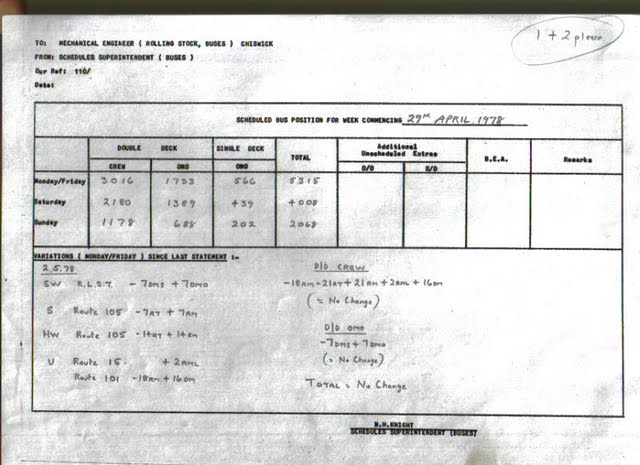 1 + 2 please
TO: MECHANICAL ENGINEER ( ROLLING STOCK, BUSES ) CHISWICK
FROM: SCHEDULES SUPERINTENDENT ( BUSES )
Our Ref: 110/
Date:
SCHEDULED BUS POSITION FOR WEEK COMMENCING 29TH APRIL. 1978
DOUBLE DECK SINGLE DECK TOTAL Additional Unscheduled Extras D.E.A. Remarks
CREW OMO OMO D/D S/D
Monday/Friday 3016 1733 566 5315
Saturday 2180 1389 439 4008
Sunday 1178 688 202 2068
VARIATIONS ( MONDAY/FRIDAY ) SINCE LAST STATEMENT :-
2.5.78
SW R.L.S.T. - 7DMS + 7DMO
S Route 105 - 7RT + 7RM
HW Route 105 - 14RT + 14RM
U Route 15. + 2RML
Route 101 - 18RM + 16DM
D/D CREW
- 18RM - 21RT + 21RM + 2RML + 16DM
( = No Change )
D/D OMO
- 7DMS + 7DMO
( = No Change )
TOTAL = No Change
N.H.KNIGHT
SCHEDULES SUPERINTENDENT (BUSES)